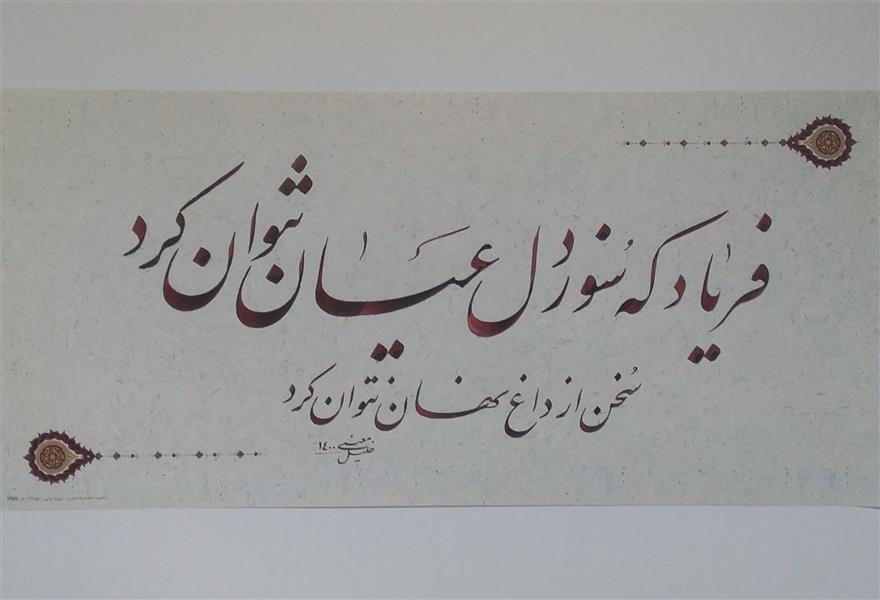 فریاد که سوز دل عیان نتوان کرد
سخن از داغ نهان نتوان کرد
خلیل معینی ۱۴۰۰